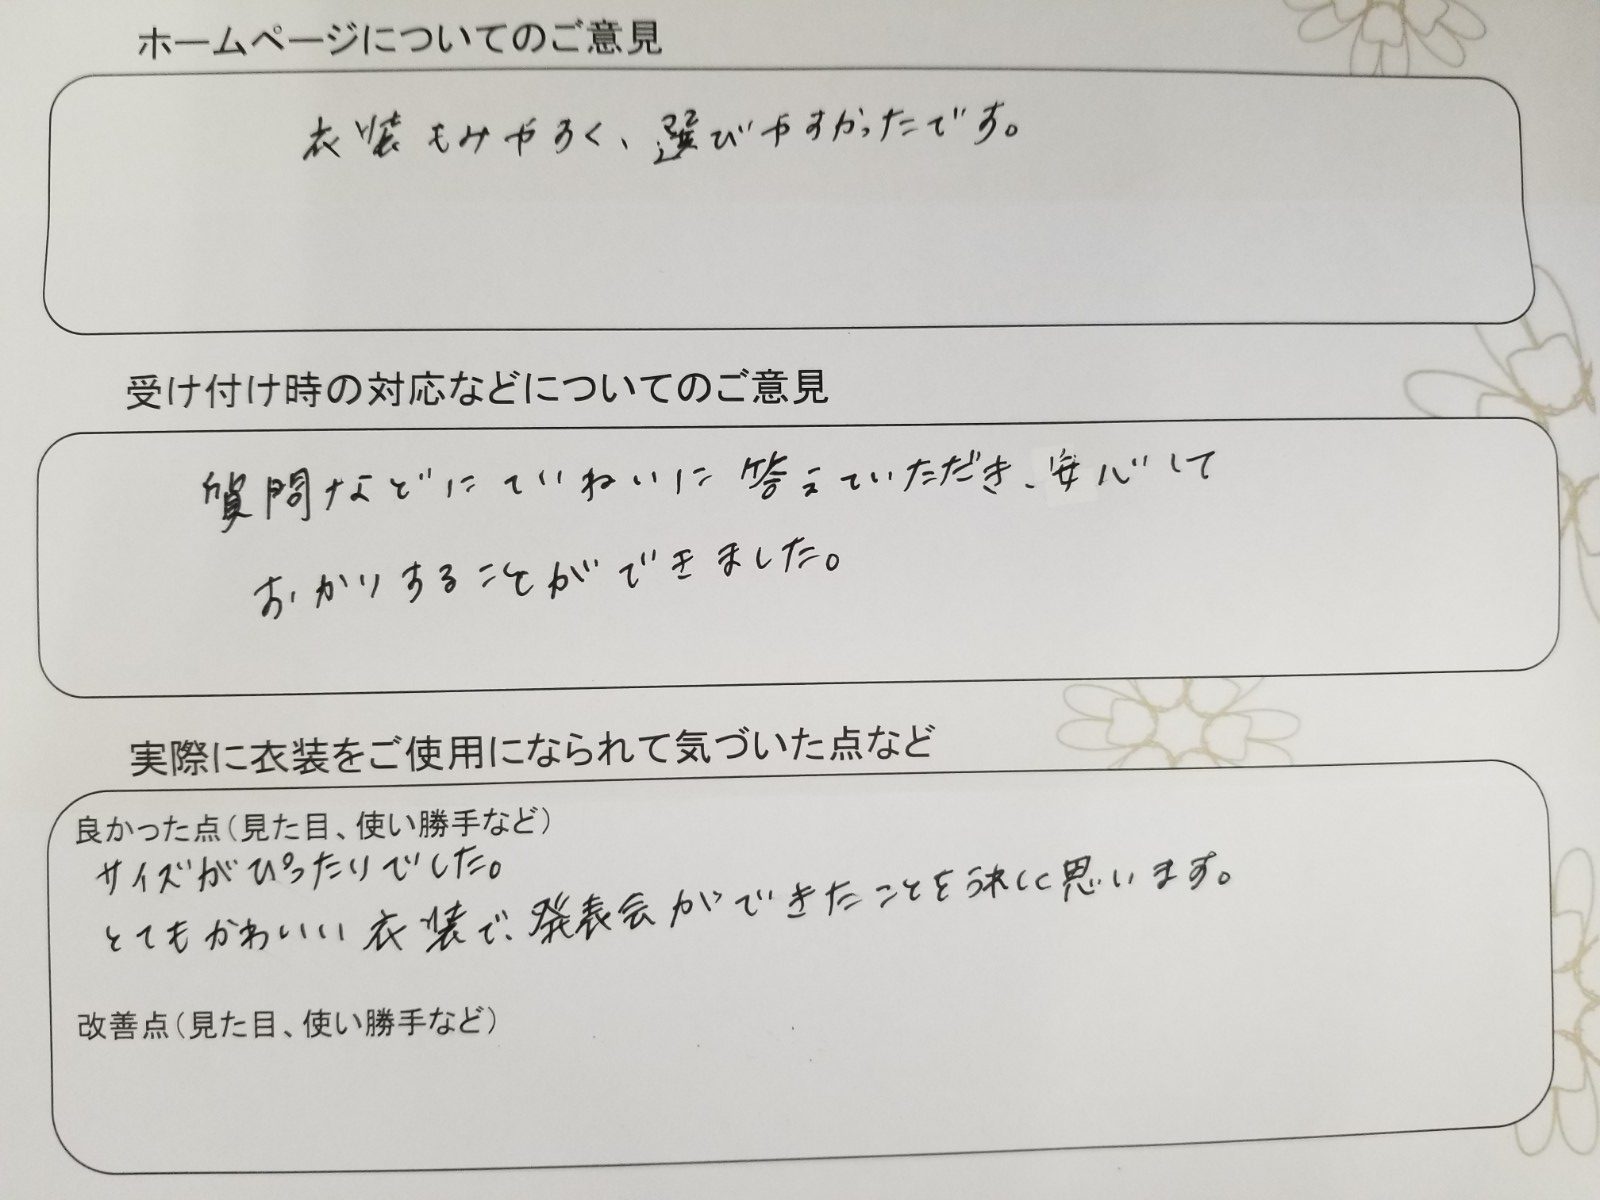 ホームページについてのご意見
衣装もみやすく、選びやすかったです。
受け付け時の対応などについてのご意見
質問などにていねいに答えていただき、安心して
おかりすることができました。
実際に衣装をご使用になられて気づいた点など
良かった点（見た目、使い勝手など）
サイズがぴったりでした。
とてもかわいい衣装で、発表会ができたことをうれしく思います。
改善点（見た目、使い勝手など）